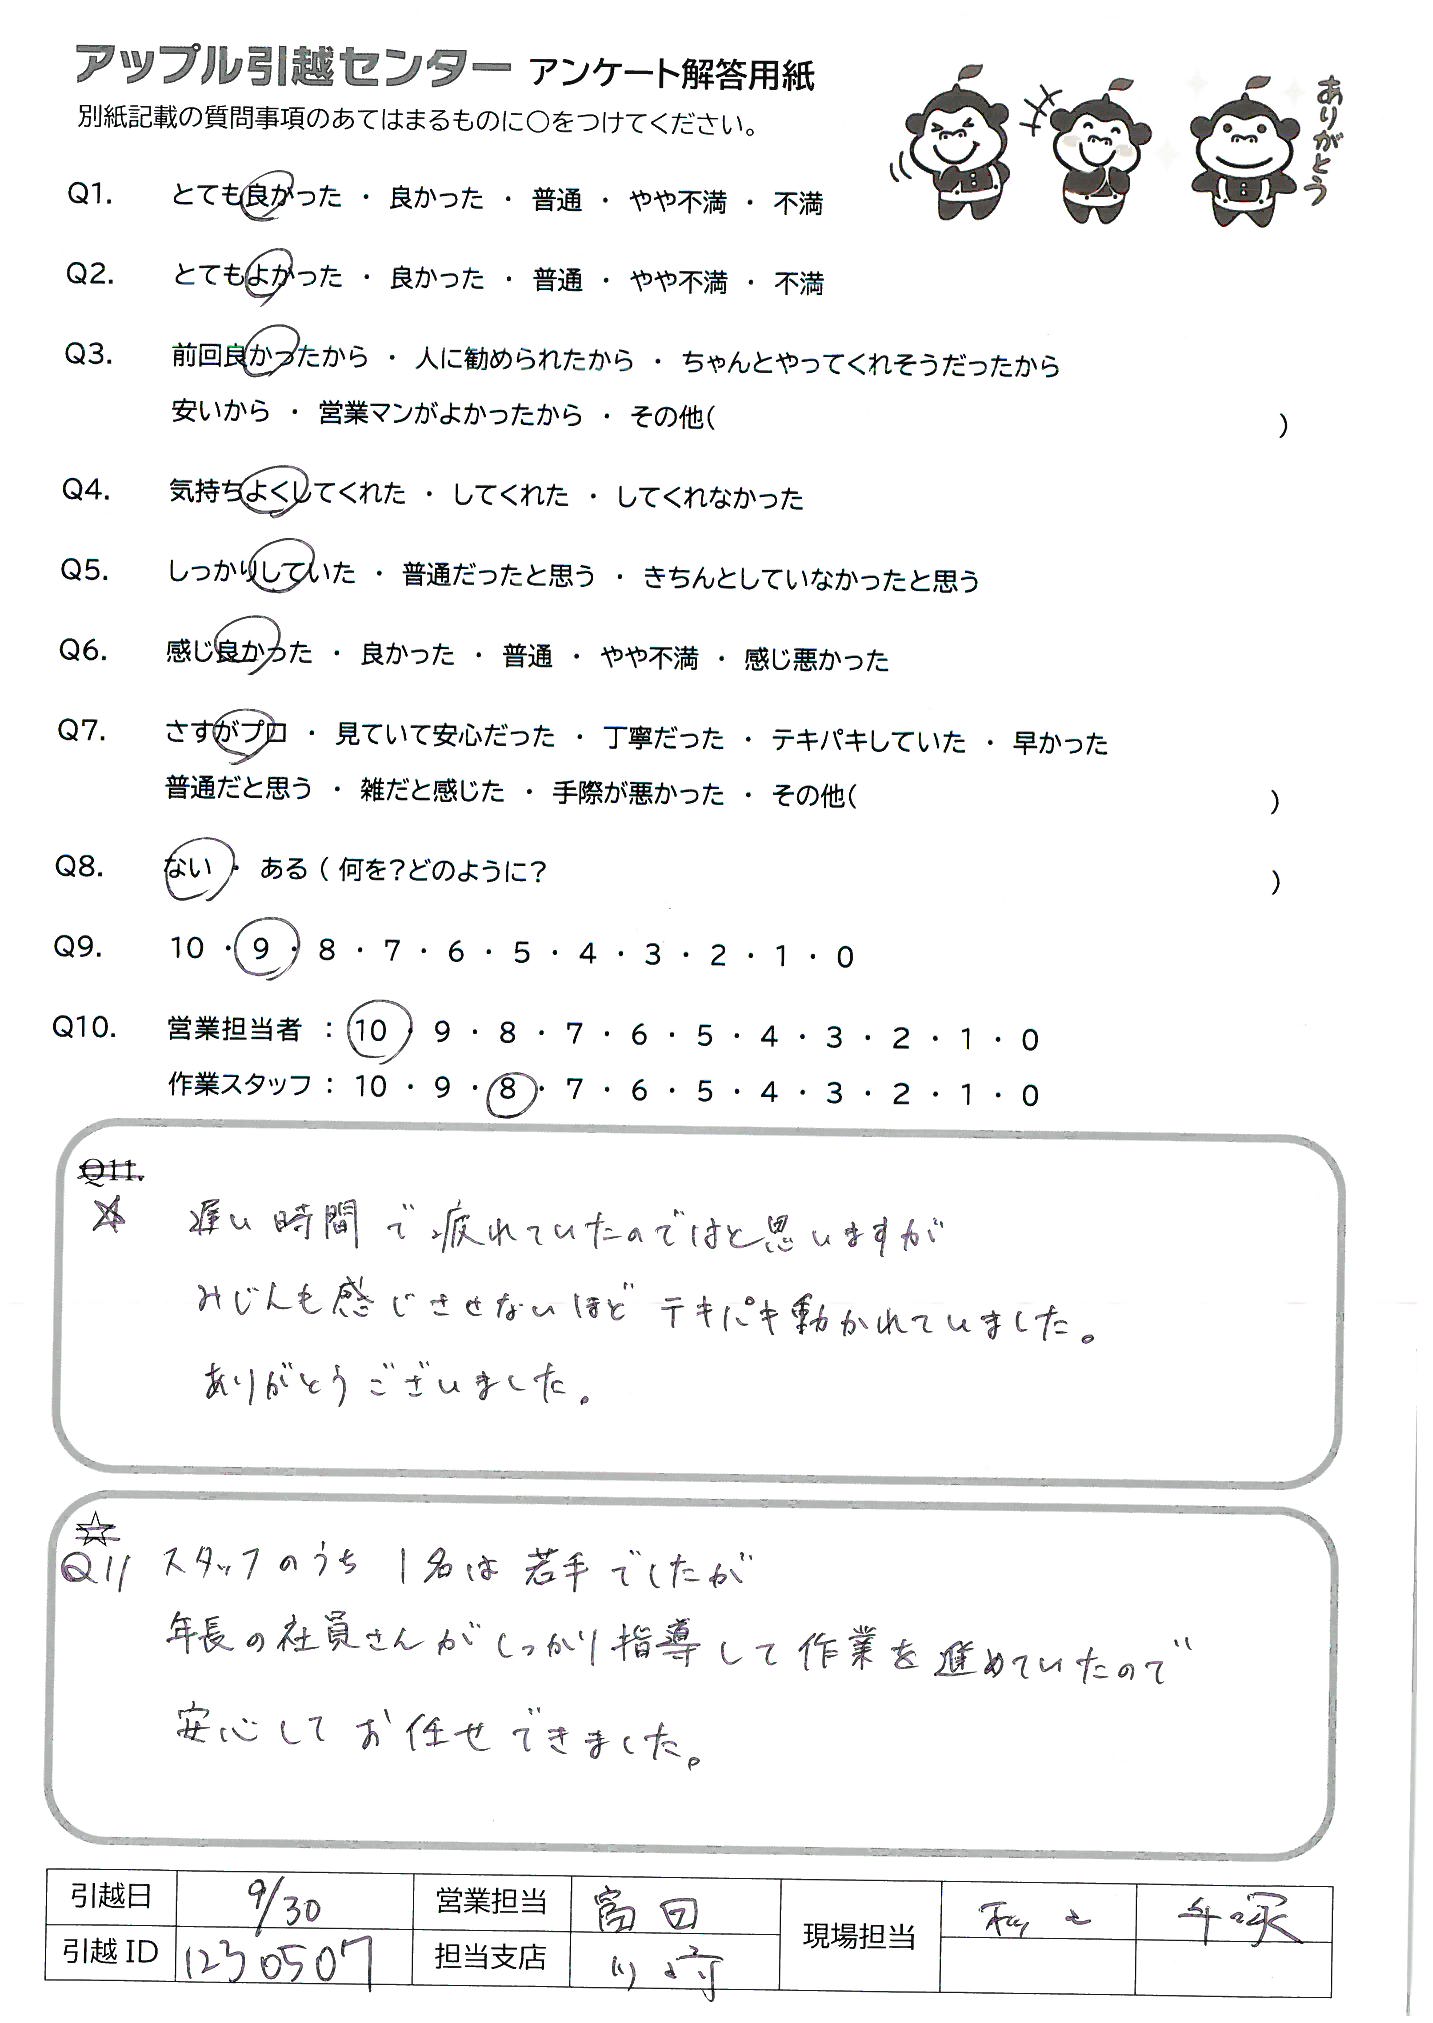 アップル引越センター アンケート解答用紙
別紙記載の質問事項のあてはまるものに○をつけてください。
ありがとう
Q1. とても良かった ・ 良かった ・ 普通 ・ やや不満 ・ 不満
Q2. とてもよかった ・ 良かった ・ 普通 ・ やや不満 ・ 不満
Q3. 前回良かったから ・ 人に勧められたから ・ ちゃんとやってくれそうだったから
安いから ・ 営業マンがよかったから ・ その他( )
Q4. 気持ちよくしてくれた ・ してくれた ・ してくれなかった
Q5. しっかりしていた ・ 普通だったと思う ・ きちんとしていなかったと思う
Q6. 感じ良かった ・ 良かった ・ 普通 ・ やや不満 ・ 感じ悪かった
Q7. さすがプロ ・ 見ていて安心だった ・ 丁寧だった ・ テキパキしていた ・ 早かった
普通だと思う ・ 雑だと感じた ・ 手際が悪かった ・ その他( )
Q8. ない ・ ある ( 何を?どのように? )
Q9. 10 ・ 9 ・ 8 ・ 7 ・ 6 ・ 5 ・ 4 ・ 3 ・ 2 ・ 1 ・ 0
Q10. 営業担当者 : 10 ・ 9 ・ 8 ・ 7 ・ 6 ・ 5 ・ 4 ・ 3 ・ 2 ・ 1 ・ 0
作業スタッフ : 10 ・ 9 ・ 8 ・ 7 ・ 6 ・ 5 ・ 4 ・ 3 ・ 2 ・ 1 ・ 0
Q11.
☆ 遅い時間で疲れていたのではと思いますが
みじんも感じさせないほどテキパキ動かれていました。
ありがとうございました。
☆
Q11 スタッフのうち1名は若手でしたが
年長の社員さんがしっかり指導して作業を進めていたので
安心してお任せできました。
引越日 9/30 営業担当 富田 現場担当
引越ID 1230507 担当支店 川崎